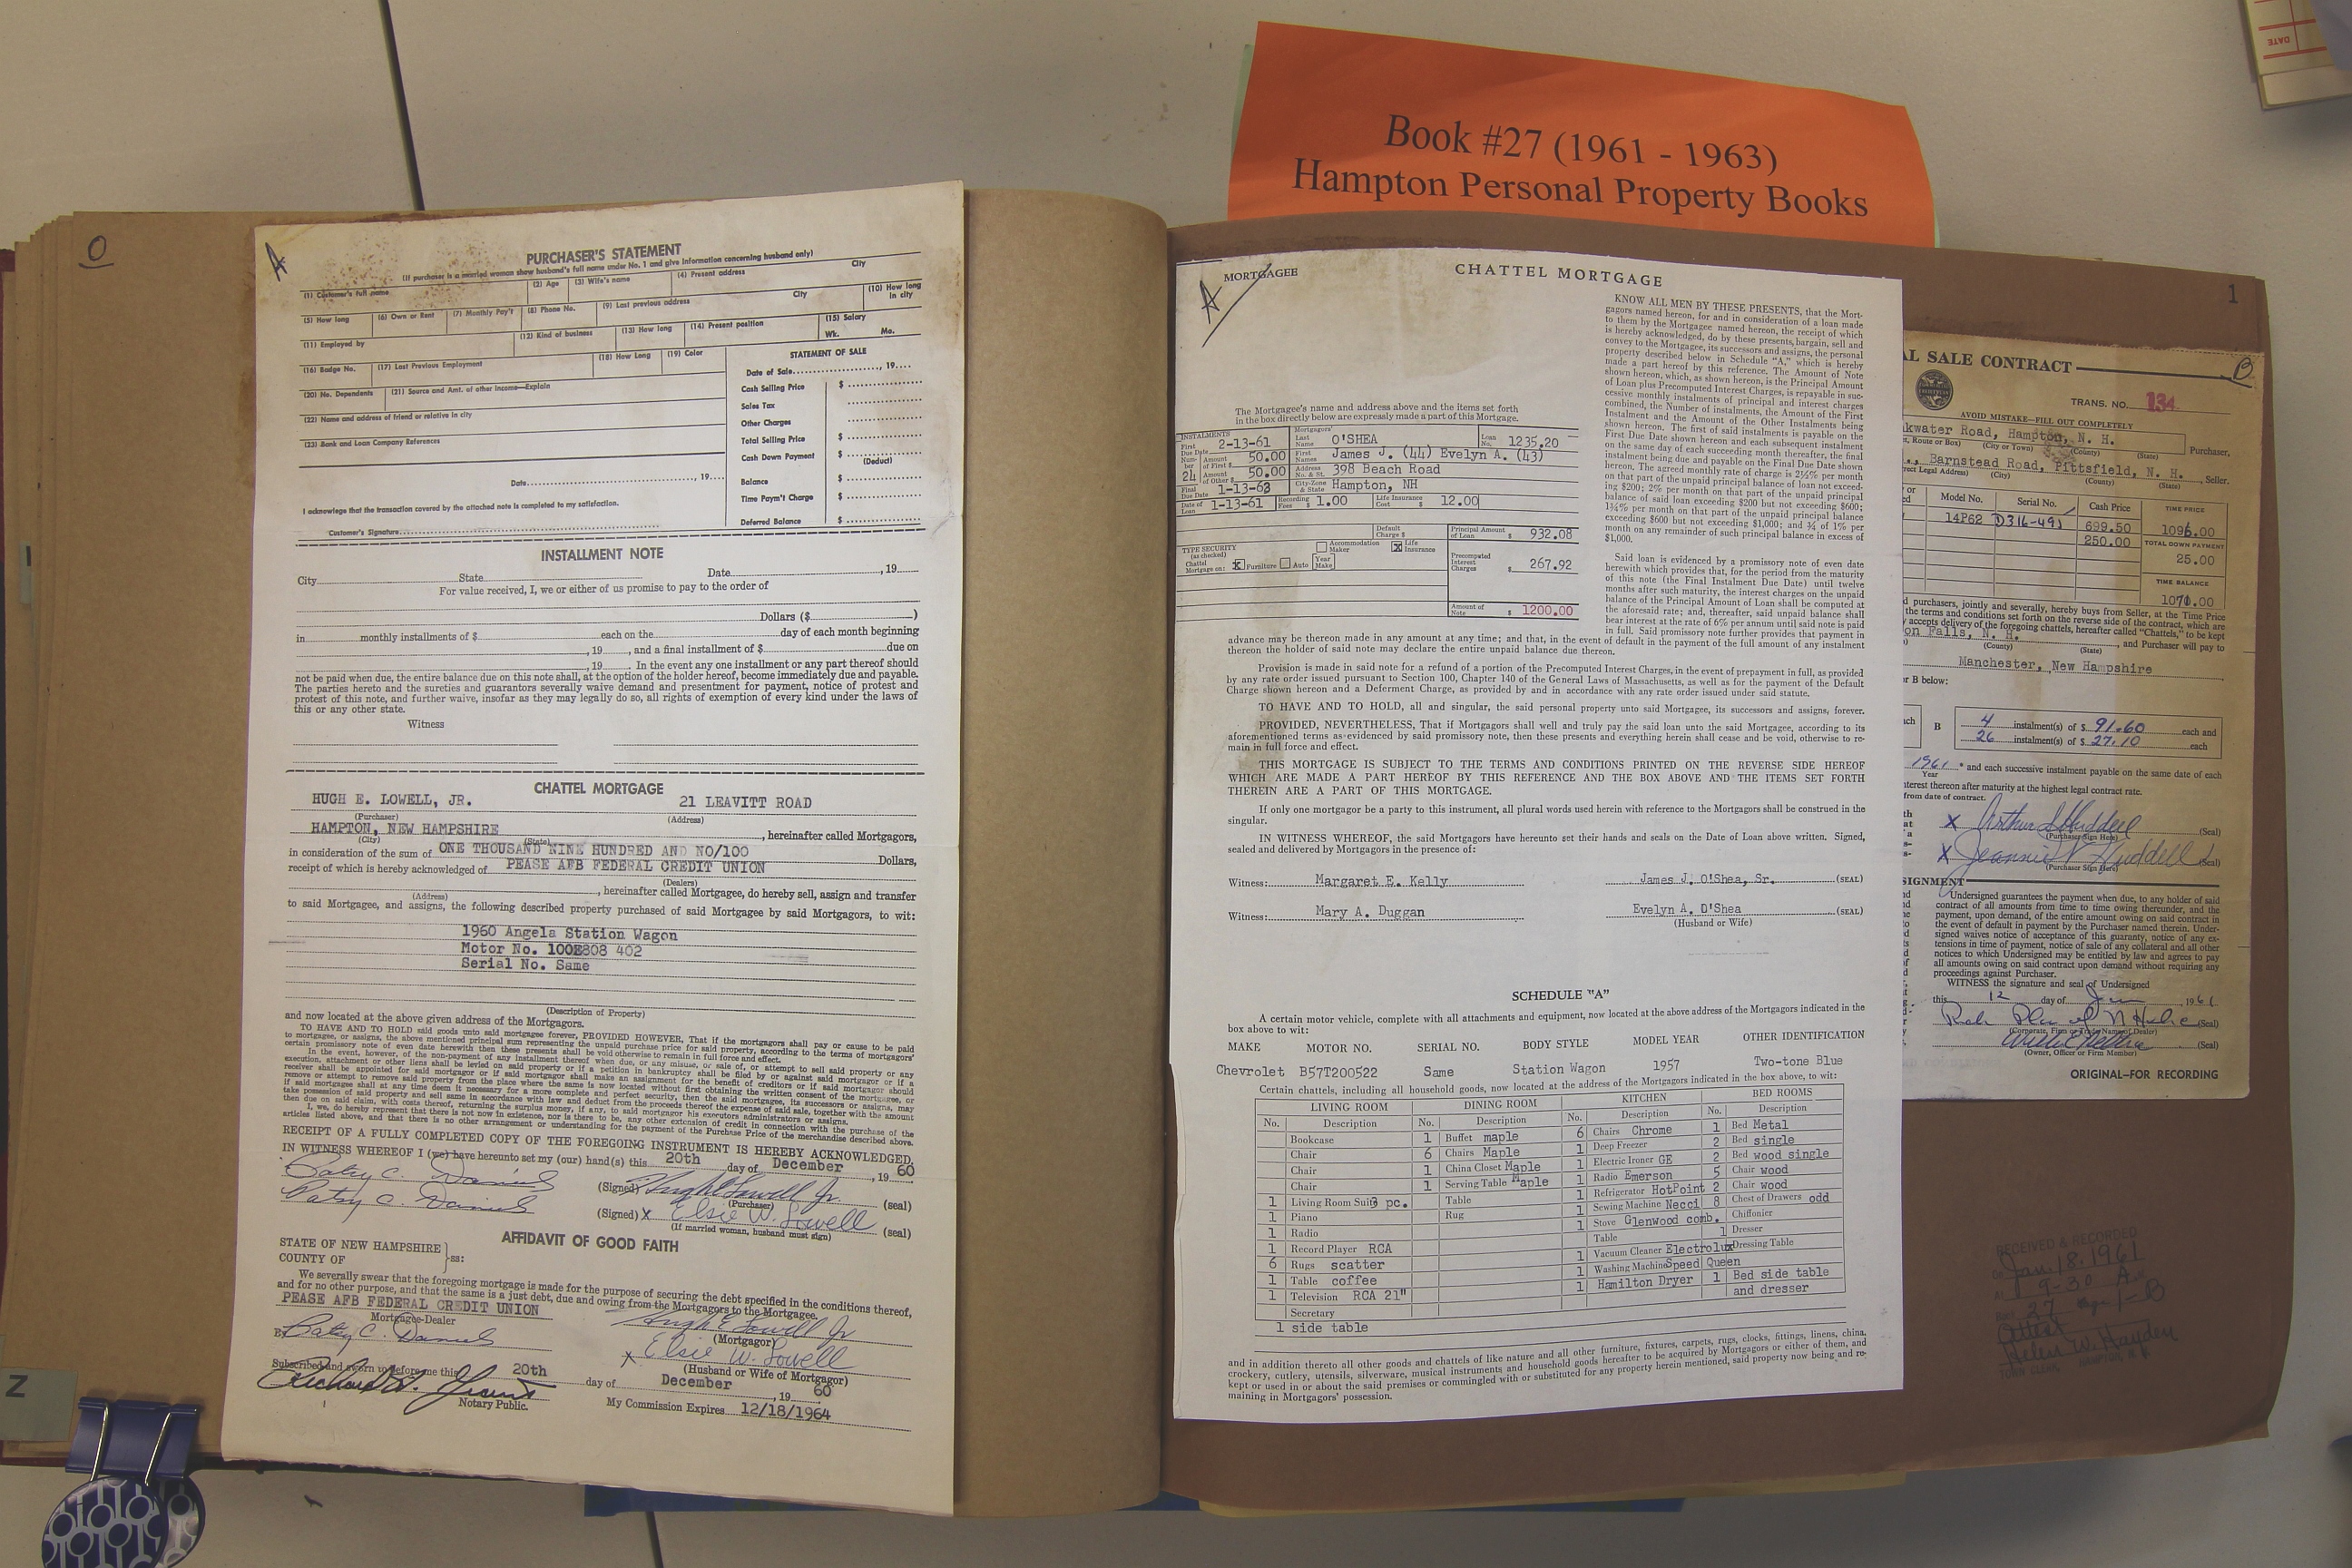 Book #27 (1961 - 1963)
Hampton Personal Property Books
O
A
PURCHASER'S STATEMENT
(If purchaser is a married woman show husband's full name under No. 1 and give information concerning husband only)
(1) Customer's full name (2) Age (3) Wife's name (4) Present address City
(5) How long (6) Own or Rent (7) Monthly Pay't (8) Phone No. (9) Last previous address City (10) How long in city
(11) Employed by (12) Kind of business (13) How long (14) Present position (15) Salary Wk. Mo.
(16) Badge No. (17) Last Previous Employment (18) How Long (19) Color
(20) No. Dependents (21) Source and Amt. of other income—Explain
(22) Name and address of friend or relative in city
(23) Bank and Loan Company References
Date , 19
I acknowlege that the transaction covered by the attached note is completed to my satisfaction.
Customer's Signature
STATEMENT OF SALE
Date of Sale , 19
Cash Selling Price $
Sales Tax
Other Charges
Total Selling Price $
Cash Down Payment $
(Deduct)
Balance $
Time Paym't Charge $
Deferred Balance $
INSTALLMENT NOTE
City State Date , 19
For value received, I, we or either of us promise to pay to the order of
Dollars ($ )
in monthly installments of $ each on the day of each month beginning
, 19 , and a final installment of $ due on
, 19 . In the event any one installment or any part thereof should
not be paid when due, the entire balance due on this note shall, at the option of the holder hereof, become immediately due and payable.
The parties hereto and the sureties and guarantors severally waive demand and presentment for payment, notice of protest and
protest of this note, and further waive, insofar as they may legally do so, all rights of exemption of every kind under the laws of
this or any other state.
Witness
CHATTEL MORTGAGE
HUGH E. LOWELL, JR. 21 LEAVITT ROAD
(Purchaser) (Address)
HAMPTON, NEW HAMPSHIRE , hereinafter called Mortgagors,
(City) (State)
in consideration of the sum of ONE THOUSAND NINE HUNDRED AND NO/100 Dollars,
receipt of which is hereby acknowledged of PEASE AFB FEDERAL CREDIT UNION
(Dealers)
, hereinafter called Mortgagee, do hereby sell, assign and transfer
(Address)
to said Mortgagee, and assigns, the following described property purchased of said Mortgagee by said Mortgagors, to wit:
1960 Angela Station Wagon
Motor No. 100E808 402
Serial No. Same
(Description of Property)
and now located at the above given address of the Mortgagors.
TO HAVE AND TO HOLD said goods unto said mortgagee forever, PROVIDED HOWEVER, That if the mortgagors shall pay or cause to be paid
to mortgagee, or assigns, the above mentioned principal sum representing the unpaid purchase price for said property, according to the terms of mortgagors'
certain promissory note of even date herewith then these presents shall be void otherwise to remain in full force and effect.
RECEIPT OF A FULLY COMPLETED COPY OF THE FOREGOING INSTRUMENT IS HEREBY ACKNOWLEDGED.
IN WITNESS WHEREOF I (we) have hereunto set my (our) hand(s) this 20th day of December , 19 60
Patsy C. Daniels (Signed) Hugh E Lowell Jr. (seal)
(Purchaser)
Patsy C. Daniels (Signed) X Elsie W. Lowell (seal)
(If married woman, husband must sign)
AFFIDAVIT OF GOOD FAITH
STATE OF NEW HAMPSHIRE
COUNTY OF ss:
We severally swear that the foregoing mortgage is made for the purpose of securing the debt specified in the conditions thereof,
and for no other purpose, and that the same is a just debt, due and owing from the Mortgagors to the Mortgagee.
PEASE AFB FEDERAL CREDIT UNION Hugh E Lowell Jr
Mortgagee-Dealer (Mortgagor)
By Patsy C. Daniels x Elsie W. Lowell
(Husband or Wife of Mortgagor)
Subscribed and sworn to before me this 20th day of December , 19 60
Notary Public. My Commission Expires 12/18/1964
Z
A
MORTGAGEE
CHATTEL MORTGAGE
KNOW ALL MEN BY THESE PRESENTS, that the Mort-
gagors named hereon, for and in consideration of a loan made
to them by the Mortgagee named hereon, the receipt of which
is hereby acknowledged, do by these presents, bargain, sell and
convey to the Mortgagee, its successors and assigns, the personal
property described below in Schedule "A," which is hereby
made a part hereof by this reference. The Amount of Note
shown hereon, which, as shown hereon, is the Principal Amount
of Loan plus Precomputed Interest Charges, is repayable in suc-
cessive monthly instalments of principal and interest charges
combined, the Number of instalments, the Amount of the First
Instalment and the Amount of the Other Instalments being
shown hereon. The first of said instalments is payable on the
First Due Date shown hereon and each subsequent instalment
on the same day of each succeeding month thereafter, the final
instalment being due and payable on the Final Due Date shown
hereon. The agreed monthly rate of charge is 2½% per month
on that part of the unpaid principal balance not exceed-
ing $200; 2% per month on that part of the unpaid principal
balance of said loan exceeding $200 but not exceeding $600;
1¾% per month on that part of the unpaid principal balance
exceeding $600 but not exceeding $1,000; and ¾ of 1% per
month on any remainder of such principal balance in excess of
$1,000.
Said loan is evidenced by a promissory note of even date
herewith which provides that, for the period from the maturity
of this note (the Final Instalment Due Date) until twelve
months after such maturity, the interest charges on the unpaid
balance of the Principal Amount of Loan shall be computed at
the aforesaid rate; and, thereafter, said unpaid balance shall
bear interest at the rate of 6% per annum until said note is paid
in full. Said promissory note further provides that payment in
The Mortgagee's name and address above and the items set forth
in the box directly below are expressly made a part of this Mortgage.
INSTALMENTS
First Due Date 2-13-61 Mortgagors' Last Name O'SHEA Loan No. 1235.20
Number 24 Amount of First $ 50.00 First Names James J. (44) Evelyn A. (43)
Amount of Other $ 50.00 Address No. & St. 398 Beach Road
Final Due Date 1-13-63 City-Zone & State Hampton, NH
Date of Loan 1-13-61 Recording Fees $ 1.00 Life Insurance Cost $ 12.00
Default Charge $ Principal Amount of Loan $ 932.08
TYPE SECURITY (as checked) Accommodation Maker X Life Insurance
Chattel Mortgage on: X Furniture Auto Year Make
Precomputed Interest Charges $ 267.92
Amount of Note $ 1200.00
advance may be thereon made in any amount at any time; and that, in the event of default in the payment of the full amount of any instalment
thereon the holder of said note may declare the entire unpaid balance due thereon.
Provision is made in said note for a refund of a portion of the Precomputed Interest Charges, in the event of prepayment in full, as provided
by any rate order issued pursuant to Section 100, Chapter 140 of the General Laws of Massachusetts, as well as for the payment of the Default
Charge shown hereon and a Deferment Charge, as provided by and in accordance with any rate order issued under said statute.
TO HAVE AND TO HOLD, all and singular, the said personal property unto said Mortgagee, its successors and assigns, forever.
PROVIDED, NEVERTHELESS, That if Mortgagors shall well and truly pay the said loan unto the said Mortgagee, according to its
aforementioned terms as evidenced by said promissory note, then these presents and everything herein shall cease and be void, otherwise to re-
main in full force and effect.
THIS MORTGAGE IS SUBJECT TO THE TERMS AND CONDITIONS PRINTED ON THE REVERSE SIDE HEREOF
WHICH ARE MADE A PART HEREOF BY THIS REFERENCE AND THE BOX ABOVE AND THE ITEMS SET FORTH
THEREIN ARE A PART OF THIS MORTGAGE.
If only one mortgagor be a party to this instrument, all plural words used herein with reference to the Mortgagors shall be construed in the
singular.
IN WITNESS WHEREOF, the said Mortgagors have hereunto set their hands and seals on the Date of Loan above written. Signed,
sealed and delivered by Mortgagors in the presence of:
Witness: Margaret E. Kelly James J. O'Shea, Sr. (SEAL)
Witness: Mary A. Duggan Evelyn A. O'Shea (SEAL)
(Husband or Wife)
SCHEDULE "A"
A certain motor vehicle, complete with all attachments and equipment, now located at the above address of the Mortgagors indicated in the
box above to wit:
MAKE MOTOR NO. SERIAL NO. BODY STYLE MODEL YEAR OTHER IDENTIFICATION
Chevrolet B57T200522 Same Station Wagon 1957 Two-tone Blue
Certain chattels, including all household goods, now located at the address of the Mortgagors indicated in the box above, to wit:
LIVING ROOM DINING ROOM KITCHEN BED ROOMS
No. Description No. Description No. Description No. Description
Bookcase 1 Buffet maple 6 Chairs Chrome 1 Bed Metal
Chair 6 Chairs Maple 1 Deep Freezer 2 Bed single
Chair 1 China Closet Maple 1 Electric Ironer GE 2 Bed wood single
Chair 1 Serving Table Maple 1 Radio Emerson 5 Chair wood
1 Living Room Suit 3 pc. Table 1 Refrigerator HotPoint 2 Chair wood
1 Piano Rug 1 Sewing Machine Necci 8 Chest of Drawers odd
1 Radio 1 Stove Glenwood comb. Chiffonier
1 Record Player RCA Table 1 Dresser
6 Rugs scatter 1 Vacuum Cleaner Electrolux Dressing Table
1 Table coffee 1 Washing Machine Speed Queen
1 Television RCA 21" 1 Hamilton Dryer 1 Bed side table
Secretary and dresser
1 side table
and in addition thereto all other goods and chattels of like nature and all other furniture, fixtures, carpets, rugs, clocks, fittings, linens, china,
crockery, cutlery, utensils, silverware, musical instruments and household goods hereafter to be acquired by Mortgagors or either of them, and
kept or used in or about the said premises or commingled with or substituted for any property herein mentioned, said property now being and re-
maining in Mortgagors' possession.
1
AL SALE CONTRACT
B
TRANS. NO. 134
AVOID MISTAKE—FILL OUT COMPLETELY
kwater Road, Hampton, N. H. Purchaser,
t, Route or Box) (City or Town) (County) (State)
., Barnstead Road, Pittsfield, N. H. , Seller.
rect Legal Address) (City) (County) (State)
Model No. Serial No. Cash Price TIME PRICE
14P62 D316-491 699.50 1096.00
250.00 TOTAL DOWN PAYMENT
25.00
TIME BALANCE
1071.00
d purchasers, jointly and severally, hereby buys from Seller, at the Time Price
the terms and conditions set forth on the reverse side of the contract, which are
y accepts delivery of the foregoing chattels, hereafter called "Chattels," to be kept
on Falls, N. H. , and Purchaser will pay to
(County) (State)
Manchester, New Hampshire
or B below:
ach B 4 instalment(s) of $ 91.60 each and
26 instalment(s) of $ 27.10 each
1961 * and each successive instalment payable on the same date of each
Year
nterest thereon after maturity at the highest legal contract rate.
from date of contract.
X Arthur S Huddell (Seal)
(Purchaser Sign Here)
X Jeannie V Huddell (Seal)
(Purchaser Sign Here)
SIGNMENT
Undersigned guarantees the payment when due, to any holder of said
contract of all amounts from time to time owing thereunder, and the
payment, upon demand, of the entire amount owing on said contract in
the event of default in payment by the Purchaser named therein. Under-
signed waives notice of acceptance of this guaranty, notice of any ex-
tensions in time of payment, notice of sale of any collateral and all other
notices to which Undersigned may be entitled by law and agrees to pay
all amounts owing on said contract upon demand without requiring any
proceedings against Purchaser.
WITNESS the signature and seal of Undersigned
this 12 day of Jan , 1961
(Seal)
(Corporate, Firm or Trade Name of Dealer)
(Seal)
(Owner, Officer or Firm Member)
ORIGINAL—FOR RECORDING
RECEIVED & RECORDED
Jan. 18, 1961
At 9-30 A.
27 1-B
Attest
Helen W. Hayden
TOWN CLERK HAMPTON, N.H.
DATE